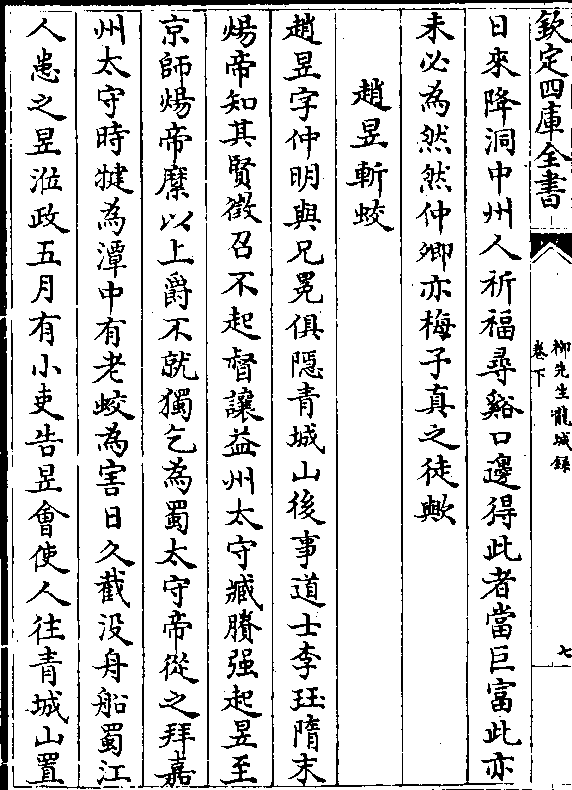 欽定四庫全書
柳先生龍城錄
卷下
七
日來降洞中州人祈福尋谿口邊得此者當巨富此亦
未必為然然仲卿亦梅子真之徒歟
趙昱斬蛟
趙昱字仲明與兄冕俱隠青城山後事道士李珏隋末
煬帝知其賢徵召不起督讓益州太守臧賸强起昱至
京師煬帝縻以上爵不就獨乞為蜀太守帝從之拜嘉
州太守時犍為潭中有老蛟為害日久截没舟船蜀江
人患之昱涖政五月有小吏告昱㑹使人往青城山置